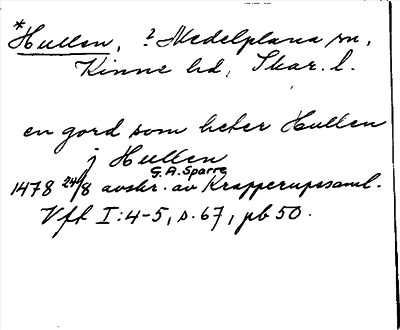 *Hullen, ? Medelplana sn,
Kinne hd, Skar. l.
en gord som heter Hullen
j Hullen
1478 24/8 avskr. av G.A. Sparre Krapperupssaml.
Vft I:4-5, s. 67, pb 50.